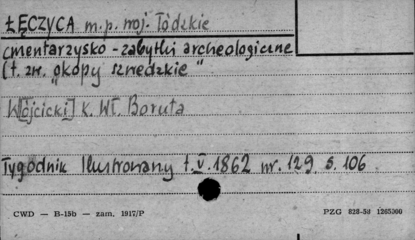 ŁĘCZYCA m.p. woj. Łódzkie
cmentarzysko - zabytki archeologiczne
(t. zw. "okopy szwedzkie"
W[ójcicki] K. Wł. Boruta
Tygodnik Ilustrowany t. V. 1862 nr. 129 s. 106
CWD — B-15b — zam. 1917/P PZG 828-58 1265000